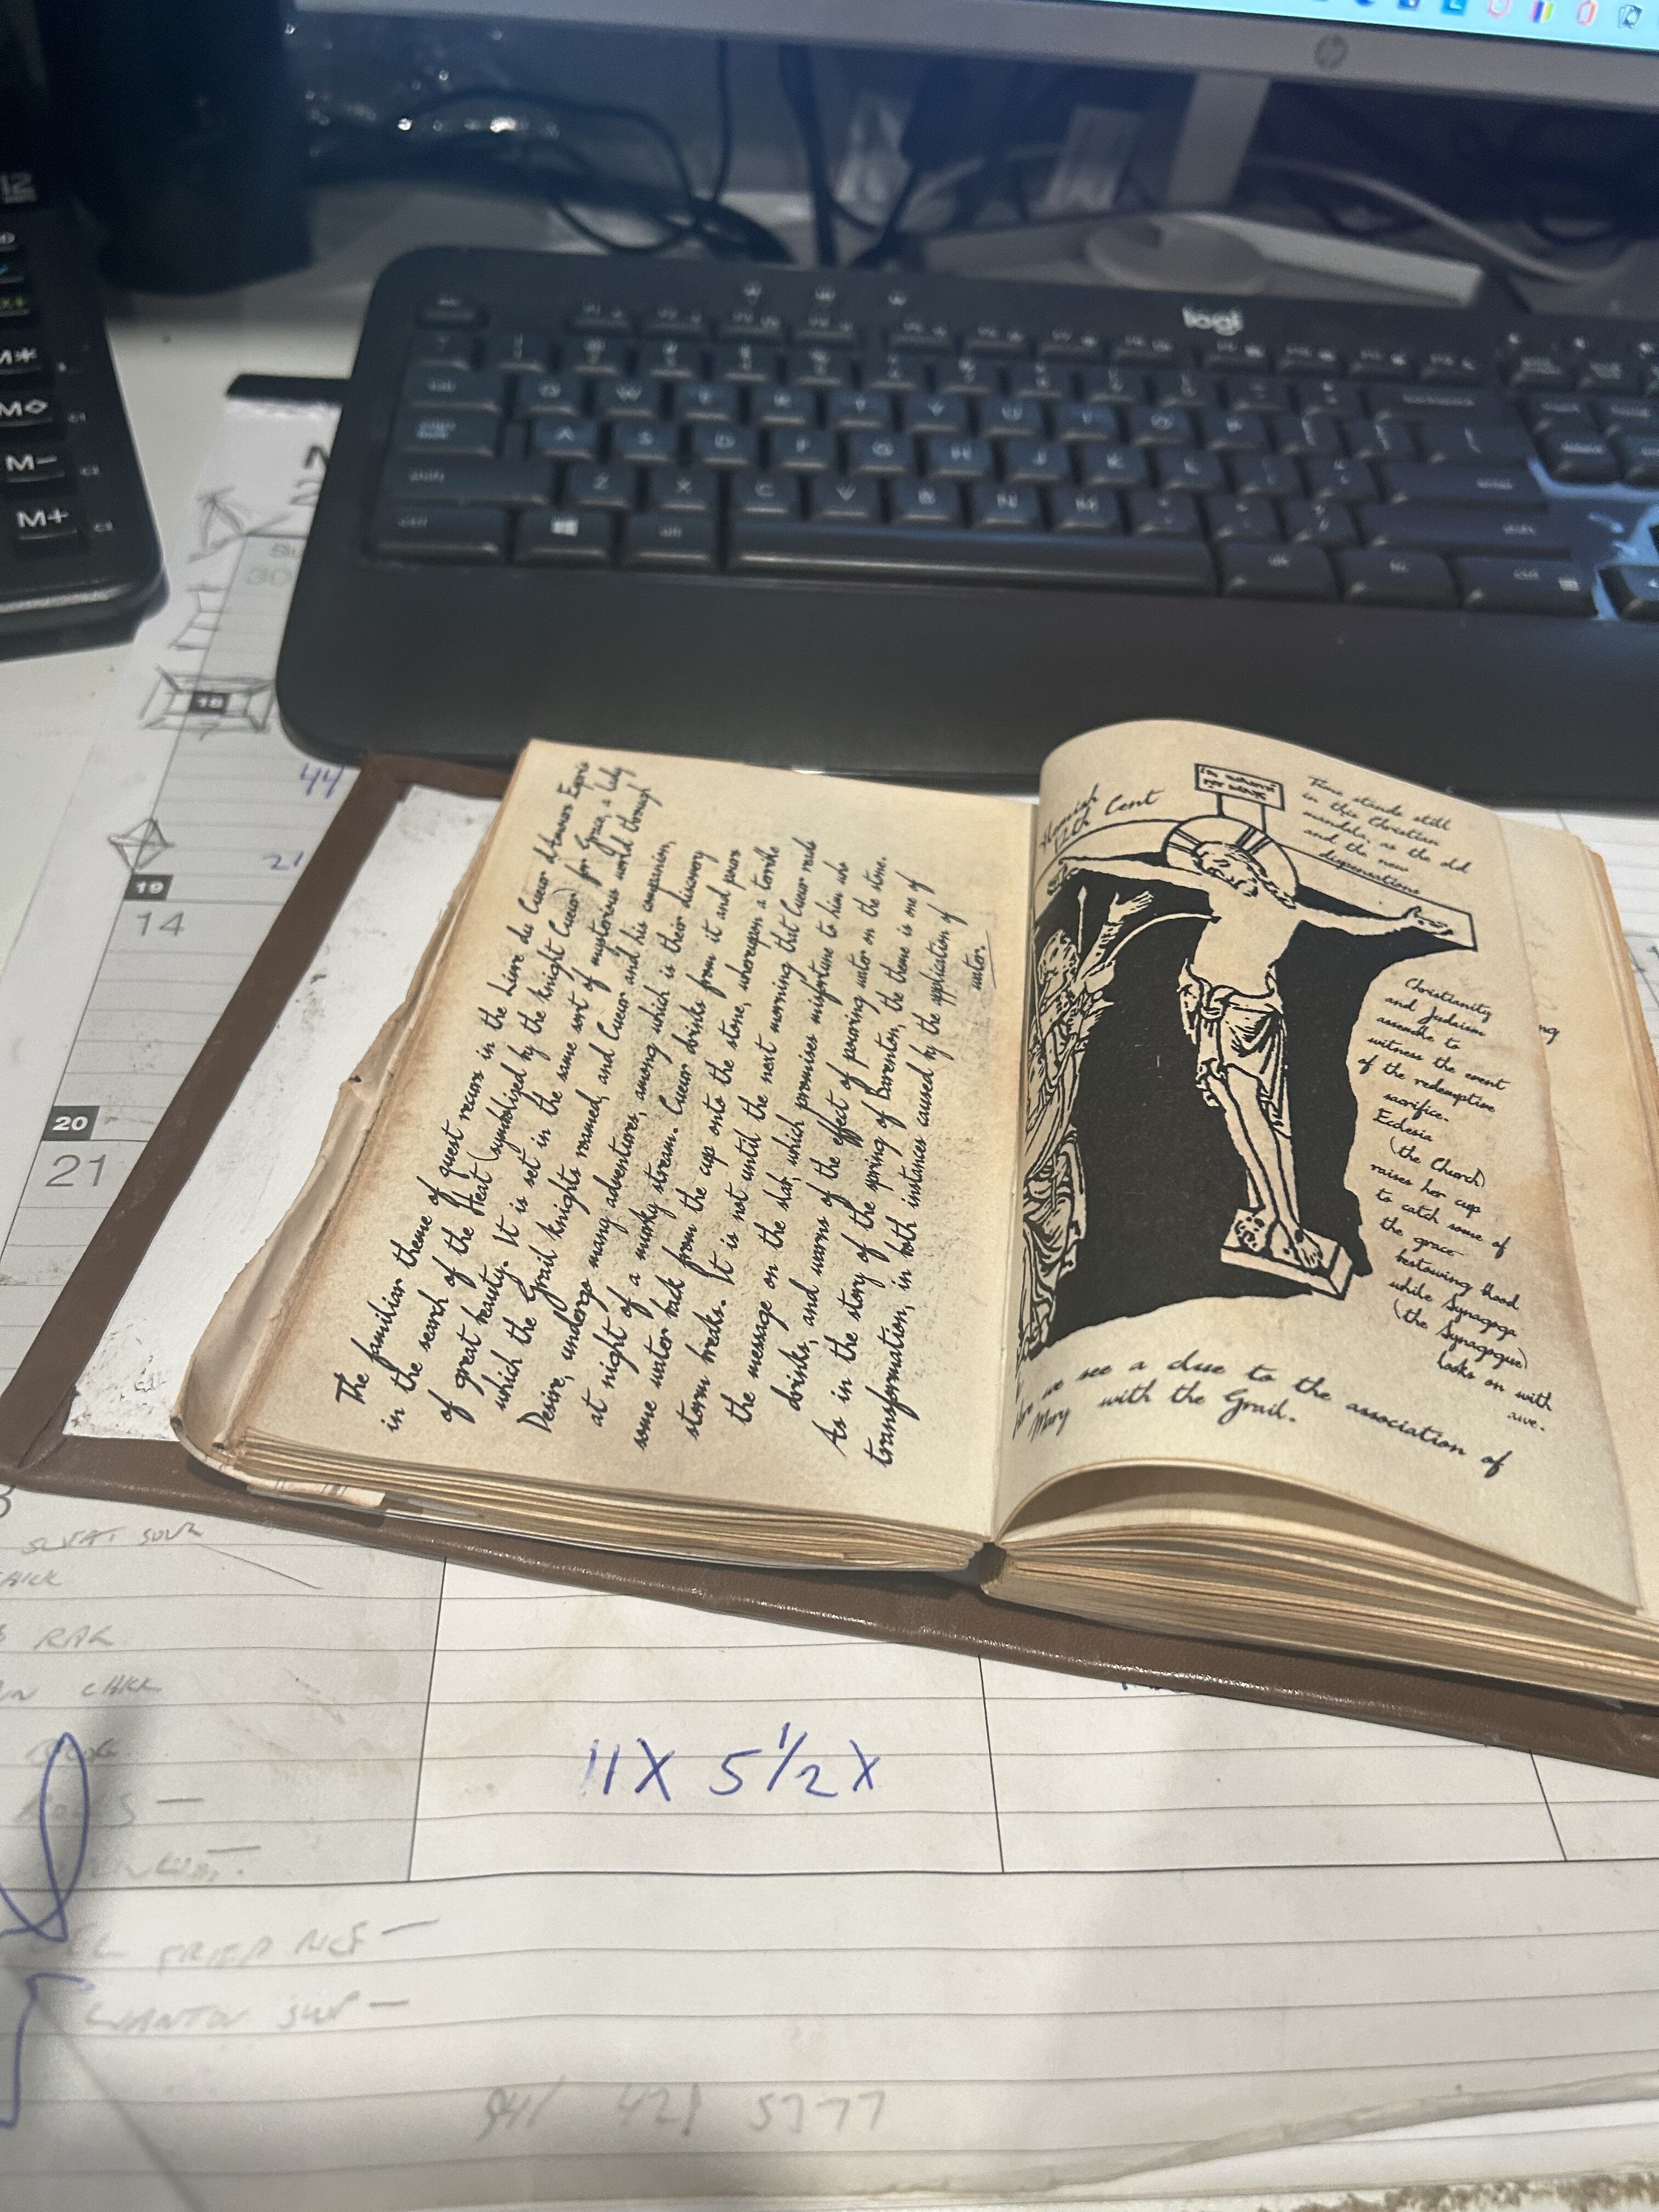 hp
logi
M*
M-
M+
Q W E R T Y U I O P
A S D F G H J K L
Z X C V B N M
30
18
44
21
19
14
20
21
The familiar theme of quest recurs in the Livre du Cueur d'Amours Espris
in the search of the Heat (symbolized by the knight Cueur) for Grace, a lady
of great beauty. It is set in the same sort of mysterious world through
which the Grail knights roamed, and Cueur and his companion,
Desire, undergo many adventures, among which is their discovery
at night of a murky stream. Cueur drinks from it and pours
some water back from the cup onto the stone, whereupon a terrible
storm breaks. It is not until the next morning that Cueur reads
the message on the slab, which promises misfortune to him who
drinks, and warns of the effect of pouring water on the stone.
As in the story of the spring of Barenton, the theme is one of
transformation, in both instances caused by the application of
water.
Flemish
12th Cent
Time stands still
in this Christian
mandala; as the old
and the new
dispensations
Christianity
and Judaism
assemble to
witness the event
of the redemptive
sacrifice.
Ecclesia
(the Church)
raises her cup
to catch some of
the grace
bestowing blood
while Synagoga
(the Synagogue)
looks on with
awe.
we see a clue to the association of
Mary with the Grail.
ng
RAK
11X 5 1/2 X
FRIED
941 421 5777